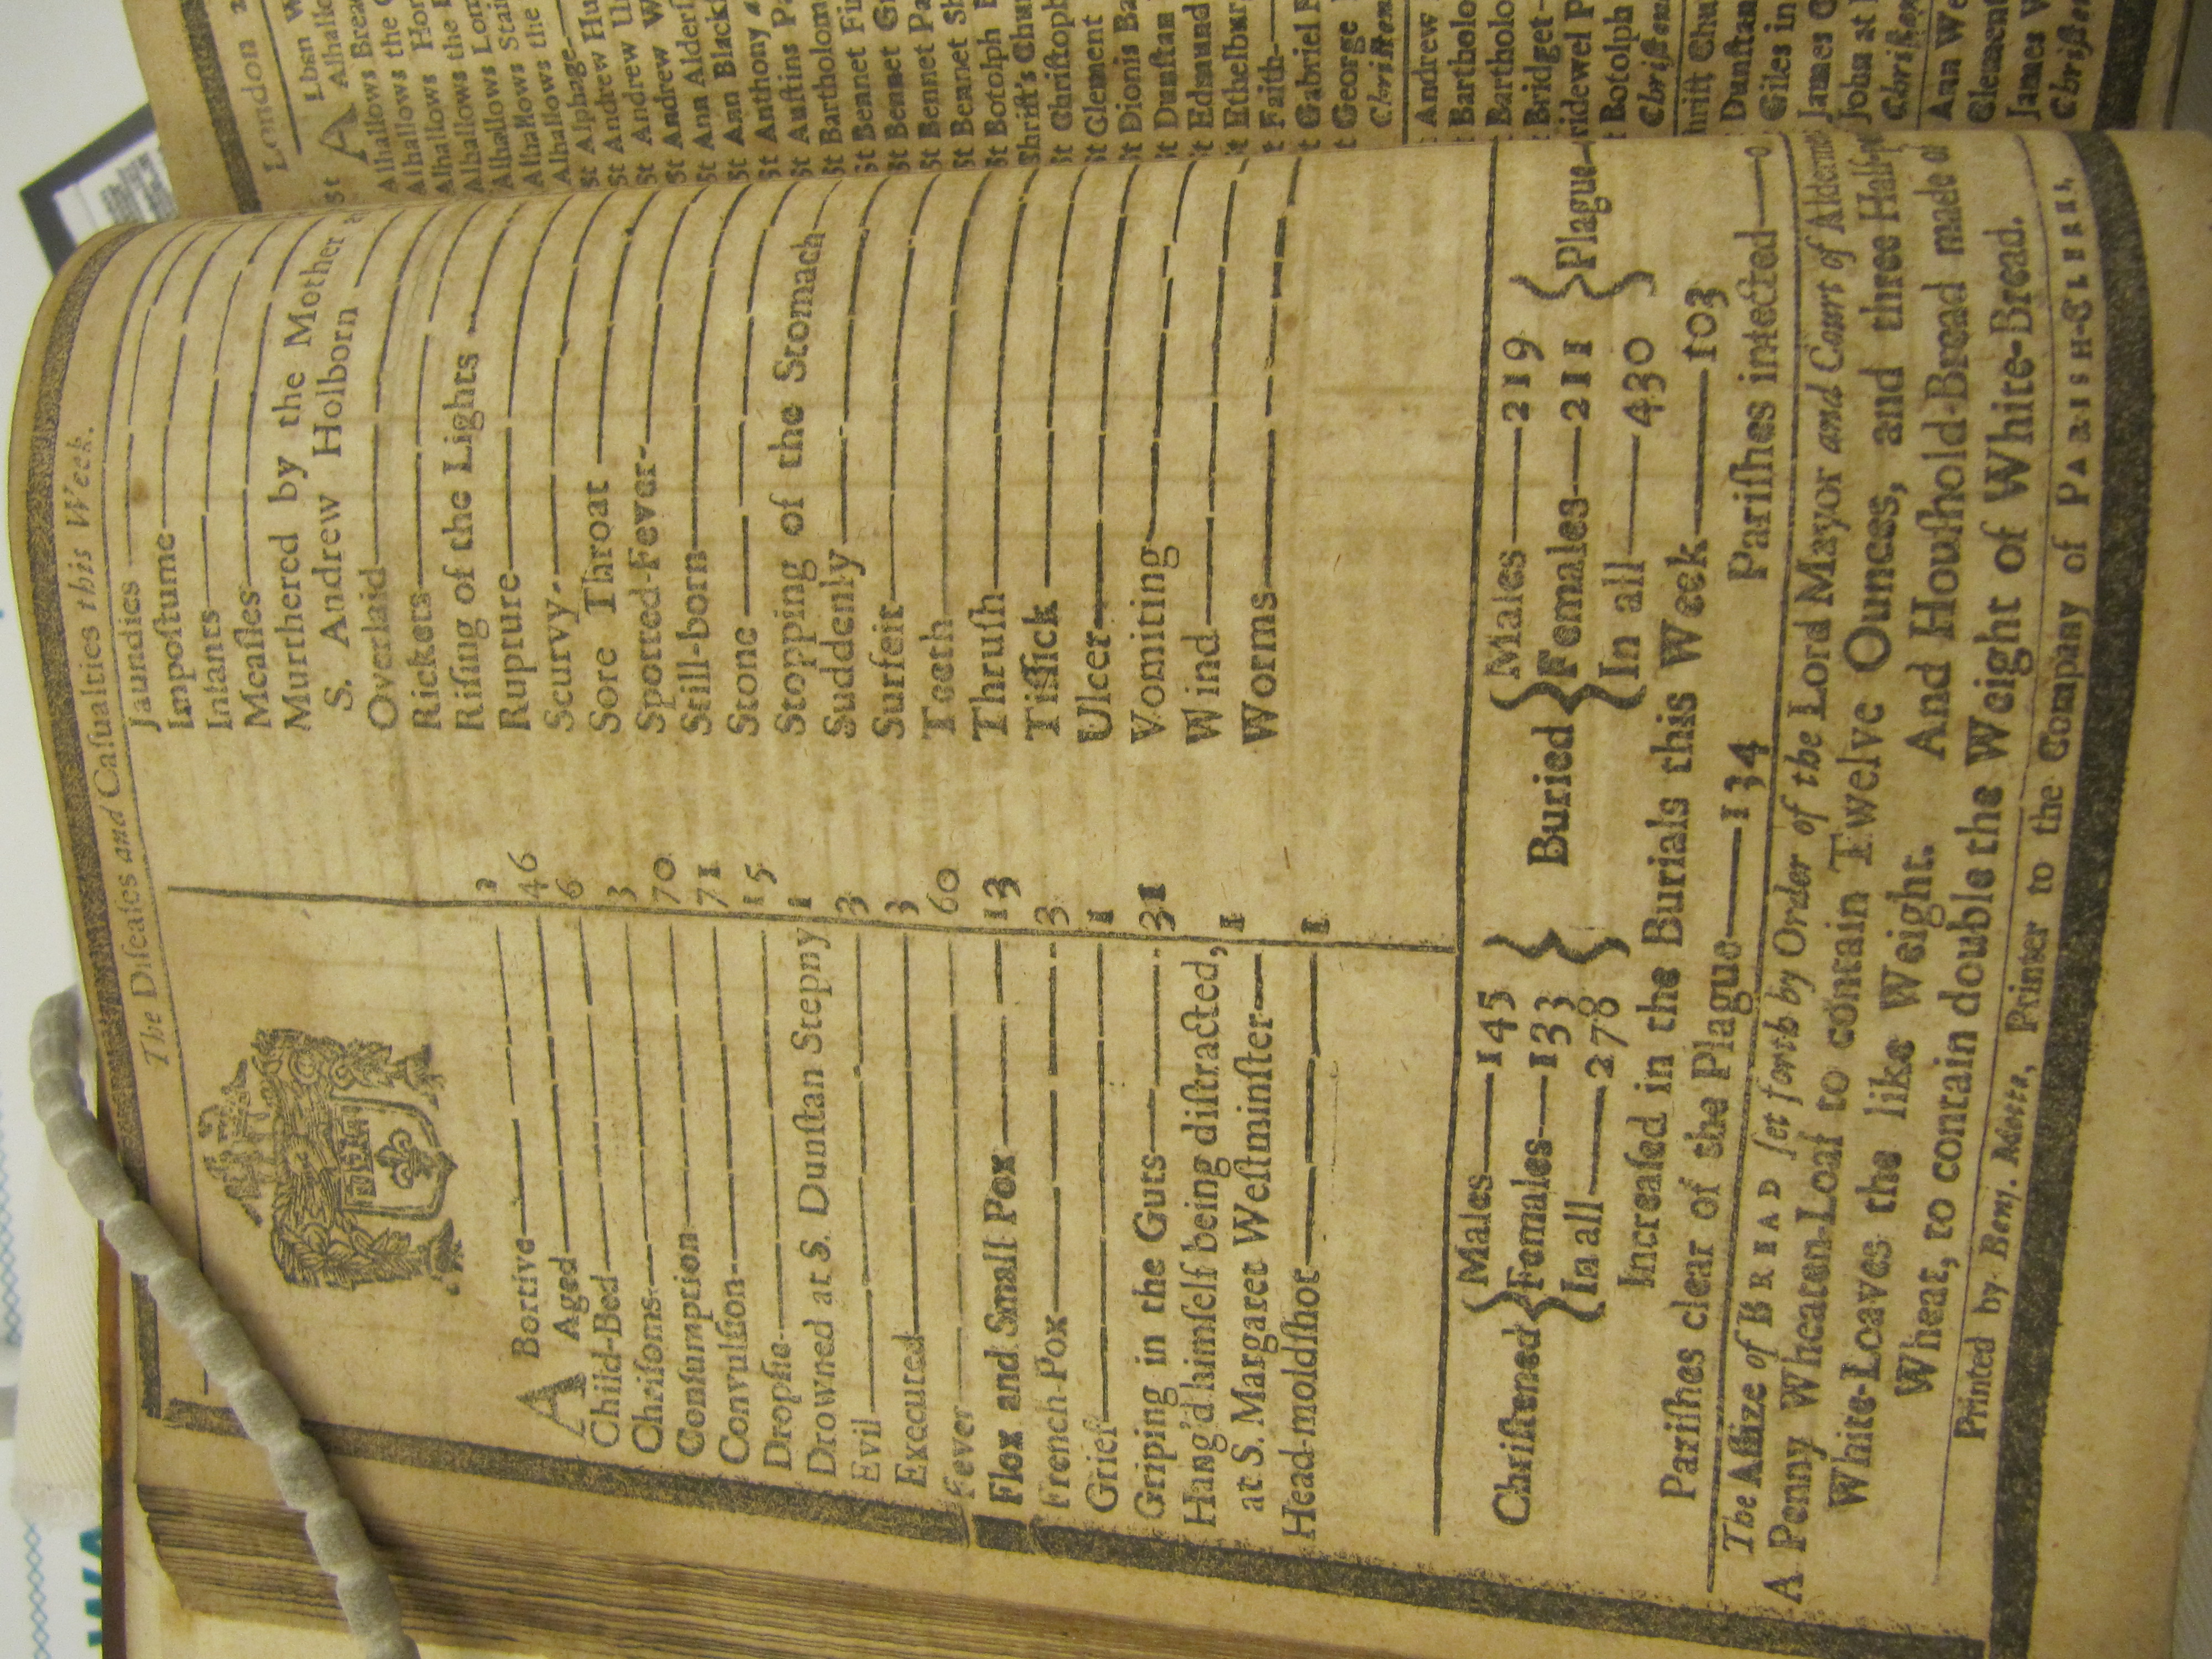 The Diſeaſes and Caſualties this Week.
A Bortive 2
Aged 46
Child-Bed 6
Chriſoms 3
Conſumption 70
Convulſion 71
Dropſie 15
Drowned at S. Dunſtan Stepny 1
Evil 3
Executed 3
Fever 60
Flox and Small Pox 13
French-Pox 3
Grief 1
Griping in the Guts 31
Hang'd himſelf being diſtracted,
at S. Margaret Weſtminſter 1
Head-moldſhot 1
Jaundies
Impoſtume
Infants
Meaſles
Murthered by the Mother
S. Andrew Holborn
Overlaid
Rickets
Riſing of the Lights
Rupture
Scurvy
Sore Throat
Spotted-Fever
Still-born
Stone
Stopping of the Stomach
Suddenly
Surfeit
Teeth
Thruſh
Tiſſick
Ulcer
Vomiting
Wind
Worms
Chriſtened { Males 145 Females 133 In all 278 } Buried { Males 219 Females 211 In all 430 } Plague
Increaſed in the Burials this Week 103
Pariſhes clear of the Plague 134 Pariſhes infected 0
The Aſſize of BREAD ſet forth by Order of the Lord Mayor and Court of
A Penny Wheaten-Loaf to contain Twelve Ounces, and three
White-Loaves the like Weight. And Houſhold-Bread made
Wheat, to contain double the Weight of White-Bread.
Printed by Benj. Motte, Printer to the Company of PARISH-CLERKS.
London
St A Lban
Alhallows
Alhallows the
Alhallows
Alhallows the
Alhallows
Alhallows
Alhallows the
Alhallows
St Alphage
St Andrew
St Andrew
St Andrew
St Ann
St Ann
St Anthony
St Auſtins
St
St Bennet
St Bennet
St Bennet
St Bennet
St Botolph
St Chriſtoph
St Clement
St Dionis
St Dunſtan
St Edmund
St
St Faith
St Gabriel
St George
St Andrew
St
St
St Bridget
St Botolph
St Dunſtan
St Giles in
St James
St John at
St Ann
St Clement
St James